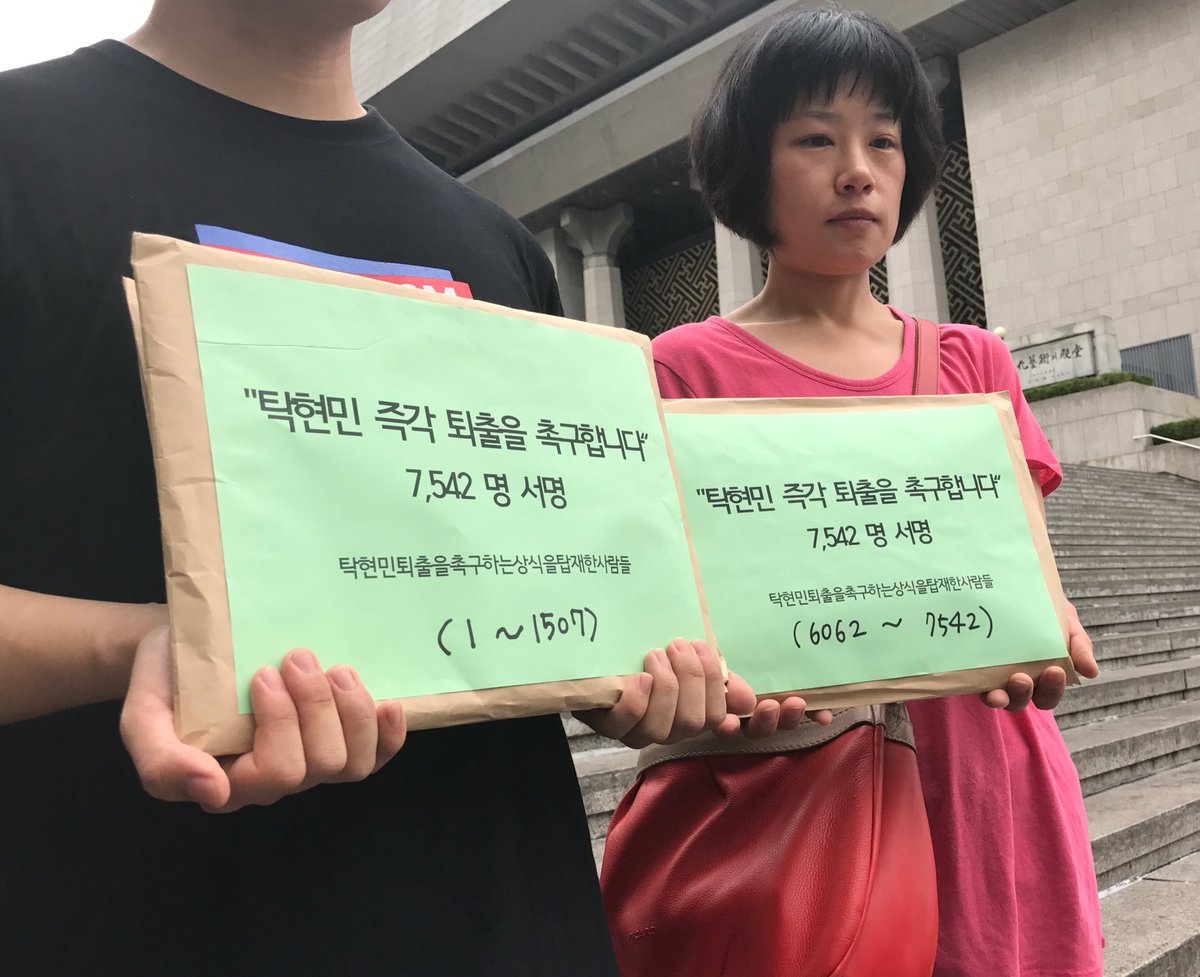 "탁현민 즉각 퇴출을 촉구합니다"
7,542 명 서명
탁현민퇴출을촉구하는상식을탑재한사람들
(1 ~ 1507)
"탁현민 즉각 퇴출을 촉구합니다"
7,542 명 서명
탁현민퇴출을촉구하는상식을탑재한사람들
(6062 ~ 7542)
化藝術의殿堂